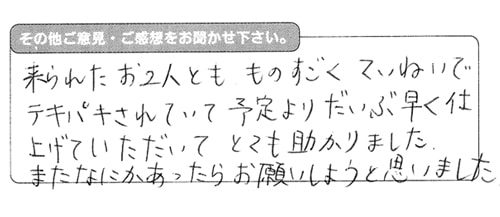 その他ご意見・ご感想をお聞かせ下さい。
来られたお2人とも ものすごく ていねいで
テキパキされていて 予定よりだいぶ早く仕
上げていただいて とても助かりました.
またなにかあったらお願いしようと思いました.